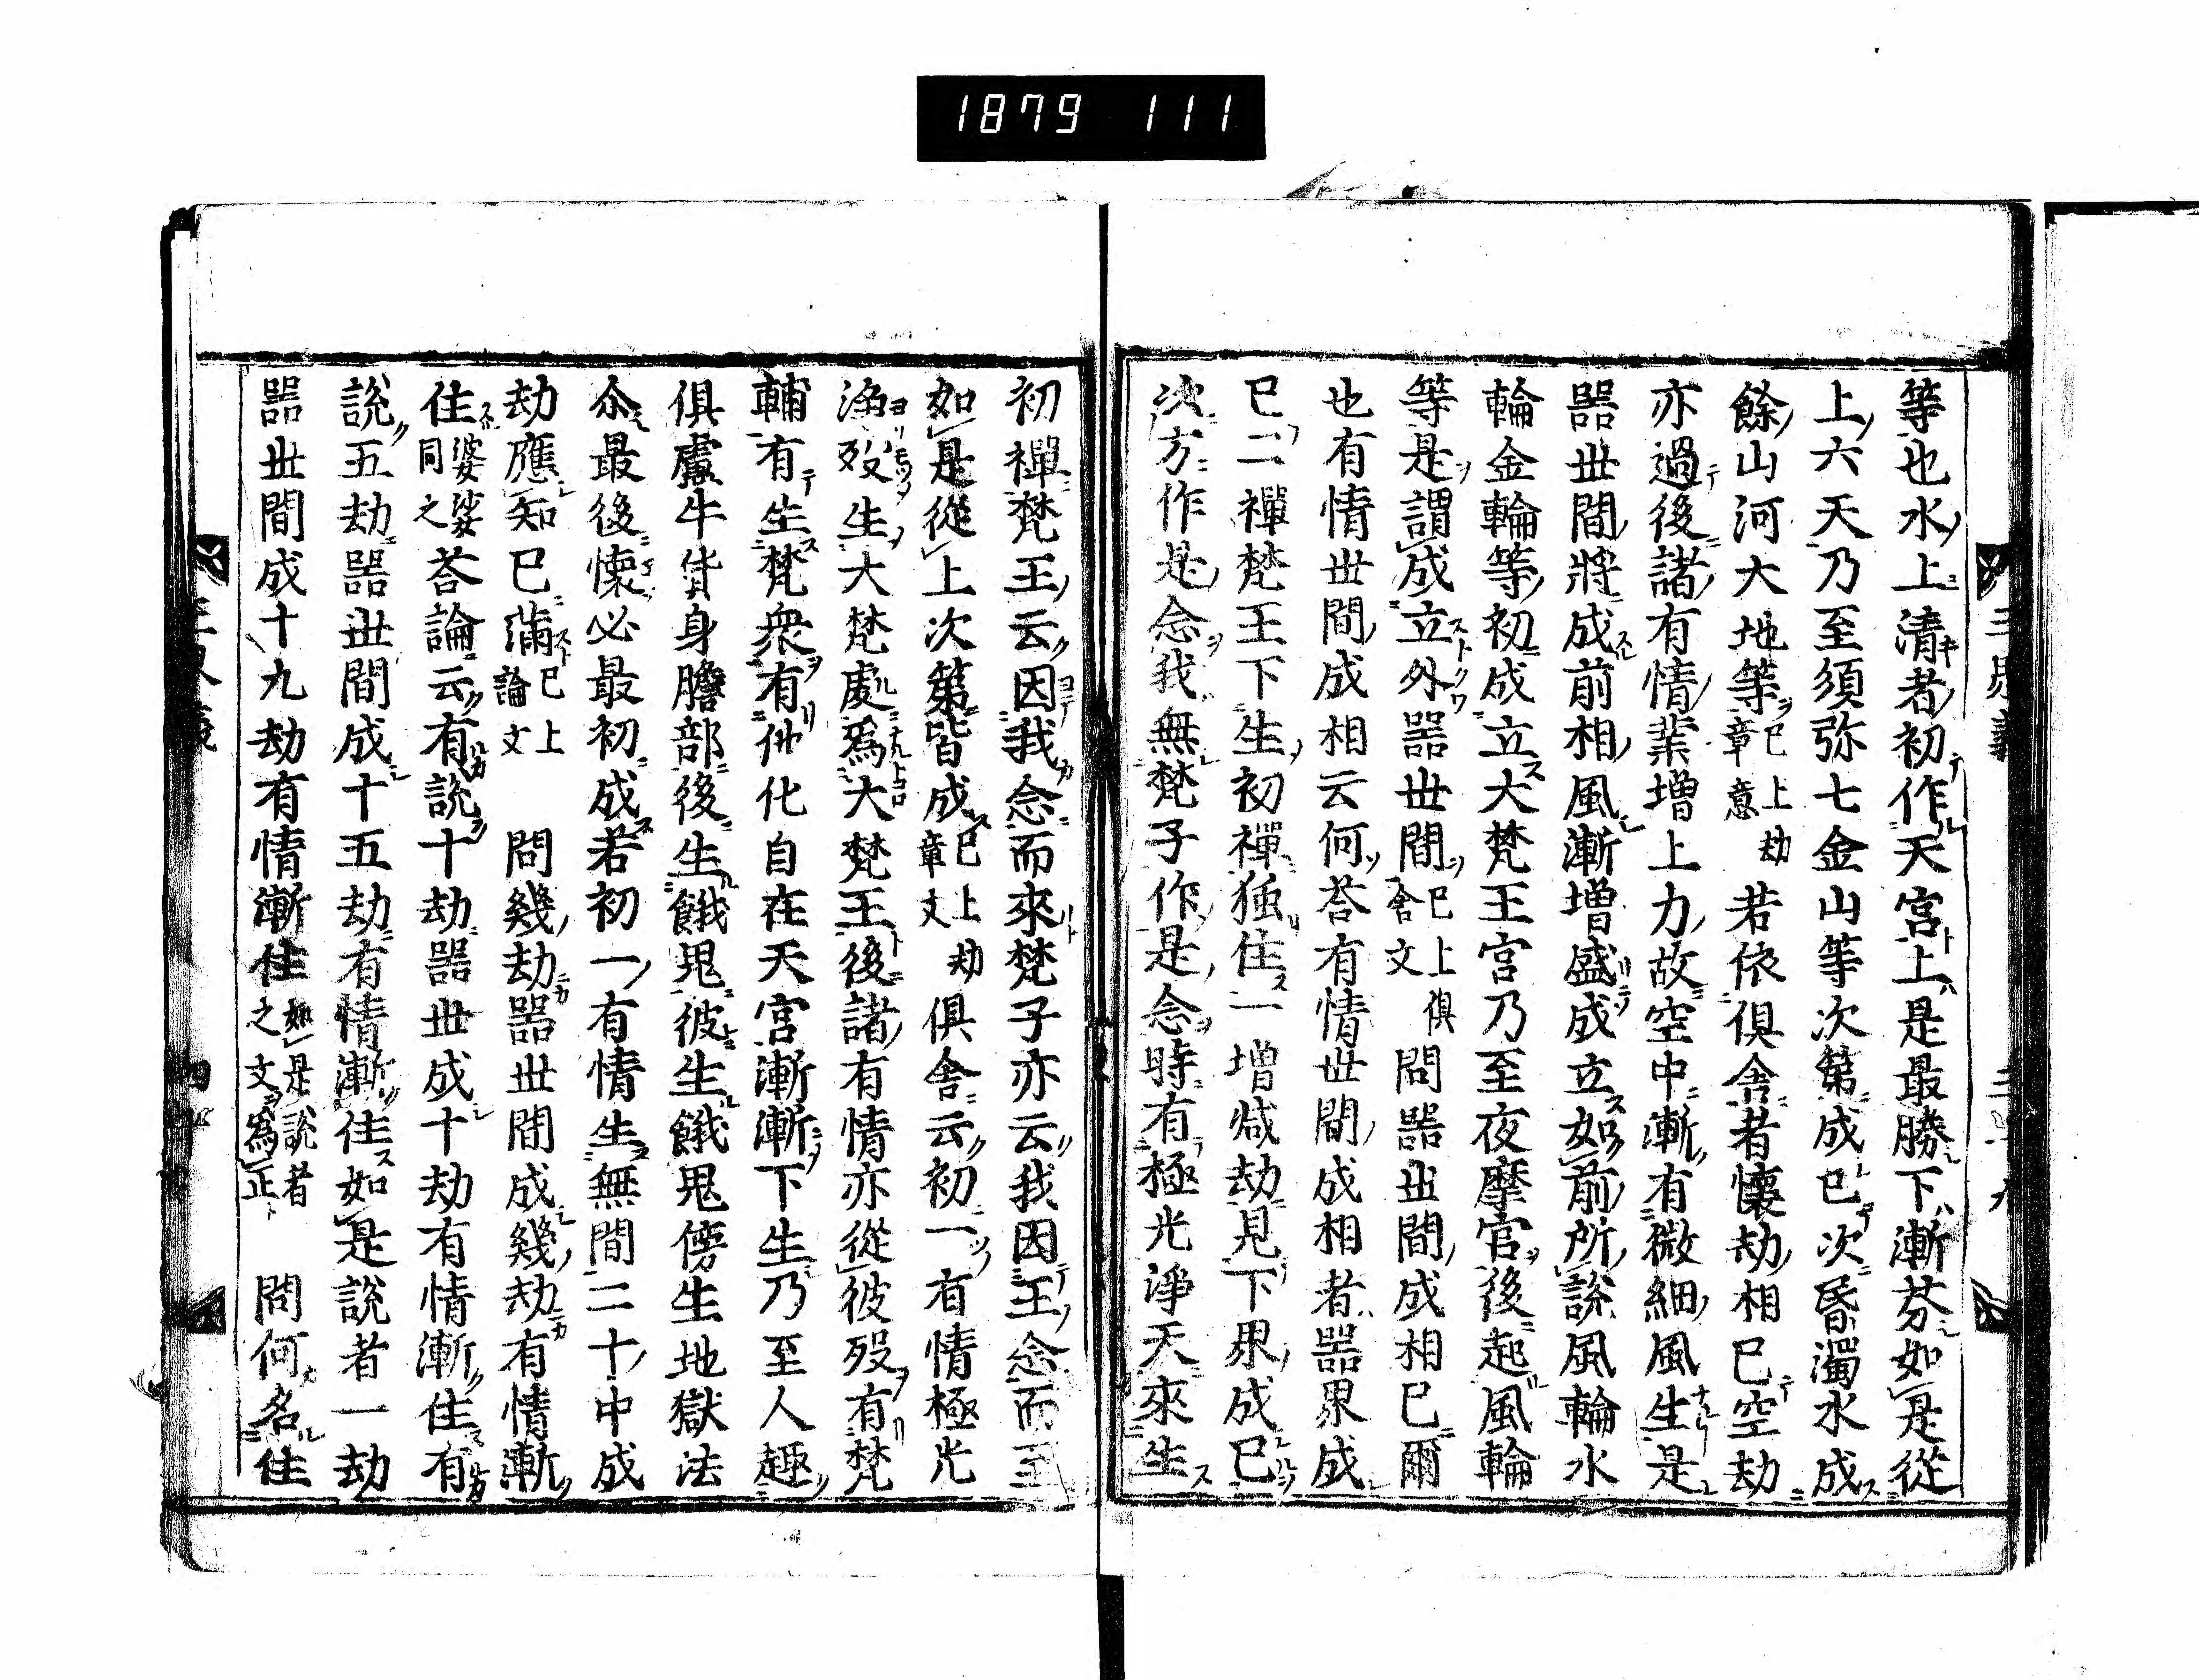 1879 111
等也水上清者初作天宮上是最勝下漸芬如是從
上六天乃至須弥七金山等次第成已次昏濁水成
餘山河大地等已上劫章意若依俱舎者懷劫相已空劫
亦過後諸有情業增上力故空中漸有微細風生是
器世間將成前相風漸增盛成立如前所說風輪水
輪金輪等初成立大梵王宮乃至夜摩官後起風輪
等是謂成立外器世間已上俱舎文問器世間成相已爾
也有情世間成相云何荅有情世間成相者器界成
已二禪梵王下生初禪独住一增減劫見下界成已
次方作是念我無梵子作是念時有極光淨天來生
初禪梵王云因我念而來梵子亦云我因王念而至
如是從上次第皆成已上劫章文俱舎云初一有情極光
淨歿生大梵處為大梵王後諸有情亦從彼歿有梵
輔有生梵衆有他化自在天宮漸漸下生乃至人趣
俱盧牛貨身贍部後生餓鬼彼生餓鬼傍生地獄法
尒最後懷必最初成若初一有情生無間二十中成
劫應知已滿已上論文問幾劫器世間成幾劫有情漸
住婆娑同之荅論云有說十劫器世成十劫有情漸住有
說五劫器世間成十五劫有情漸住如是說者一劫
器世間成十九劫有情漸住如是說者之文為正問何名住